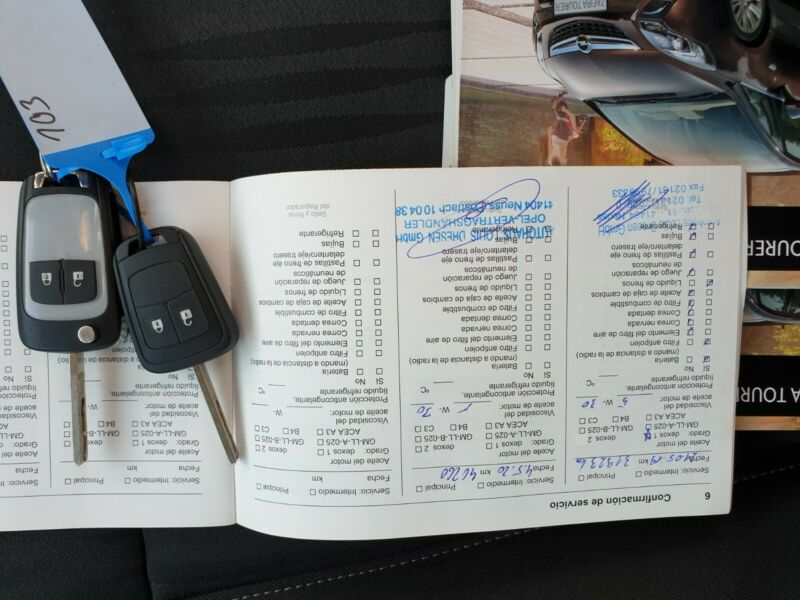 6 Confirmación de servicio
Servicio: Intermedio Principal
Fecha 24.05.19 km 31923 km
Aceite del motor
Grado: dexos 1 dexos 2
GM-LL-A-025 GM-LL-B-025
ACEA A3 B4 C3
Viscosidad del
aceite de motor: 5 W- 30
Protección anticongelante,
líquido refrigerante °C
Sí No
Batería
(mando a distancia de la radio)
Filtro antipolen
Elemento del filtro de aire
Correa nervada
Correa dentada
Filtro de combustible
Aceite de cambios
Líquido de frenos
Juego de reparación
de neumáticos
Pastillas de freno eje
delantero/eje trasero
Bujías
Refrigerante
Fax 02161/7959333
Servicio: Intermedio Principal
Fecha 4.5.20 km 40260
Aceite del motor
Grado: dexos 1 dexos 2
GM-LL-A-025 GM-LL-B-025
ACEA A3 B4 C3
Viscosidad del
aceite de motor: W- 30
Protección anticongelante,
líquido refrigerante °C
Sí No
Batería
(mando a distancia de la radio)
Filtro antipolen
Elemento del filtro de aire
Correa nervada
Correa dentada
Filtro de combustible
Aceite de cambios
Líquido de frenos
Juego de reparación
de neumáticos
Pastillas de freno eje
delantero/eje trasero
Bujías
Refrigerante
AUTOHAUS LOUIS DRESEN GmbH
OPEL-VERTRAGSHÄNDLER
41404 Neuss, Postfach 10 04 38
Servicio: Intermedio Principal
Fecha km
Aceite del motor
Grado: dexos 1 dexos 2
GM-LL-A-025 GM-LL-B-025
ACEA A3 B4 C3
Viscosidad del
aceite de motor: W-
Protección anticongelante,
líquido refrigerante °C
Sí No
Batería
(mando a distancia de la radio)
Filtro antipolen
Elemento del filtro de aire
Correa nervada
Correa dentada
Filtro de combustible
Aceite de cambios
Líquido de frenos
Juego de reparación
de neumáticos
Pastillas de freno eje
delantero/eje trasero
Bujías
Refrigerante
Sello y firma
del Reparador
Servicio: Intermedio Principal
Fecha
Aceite del motor
Grado: dexos 1
GM-LL-A-025
ACEA A3 B4
Viscosidad del
aceite de motor:
Protección anticongelante,
líquido refrigerante
103
ZAFIRA TOURER